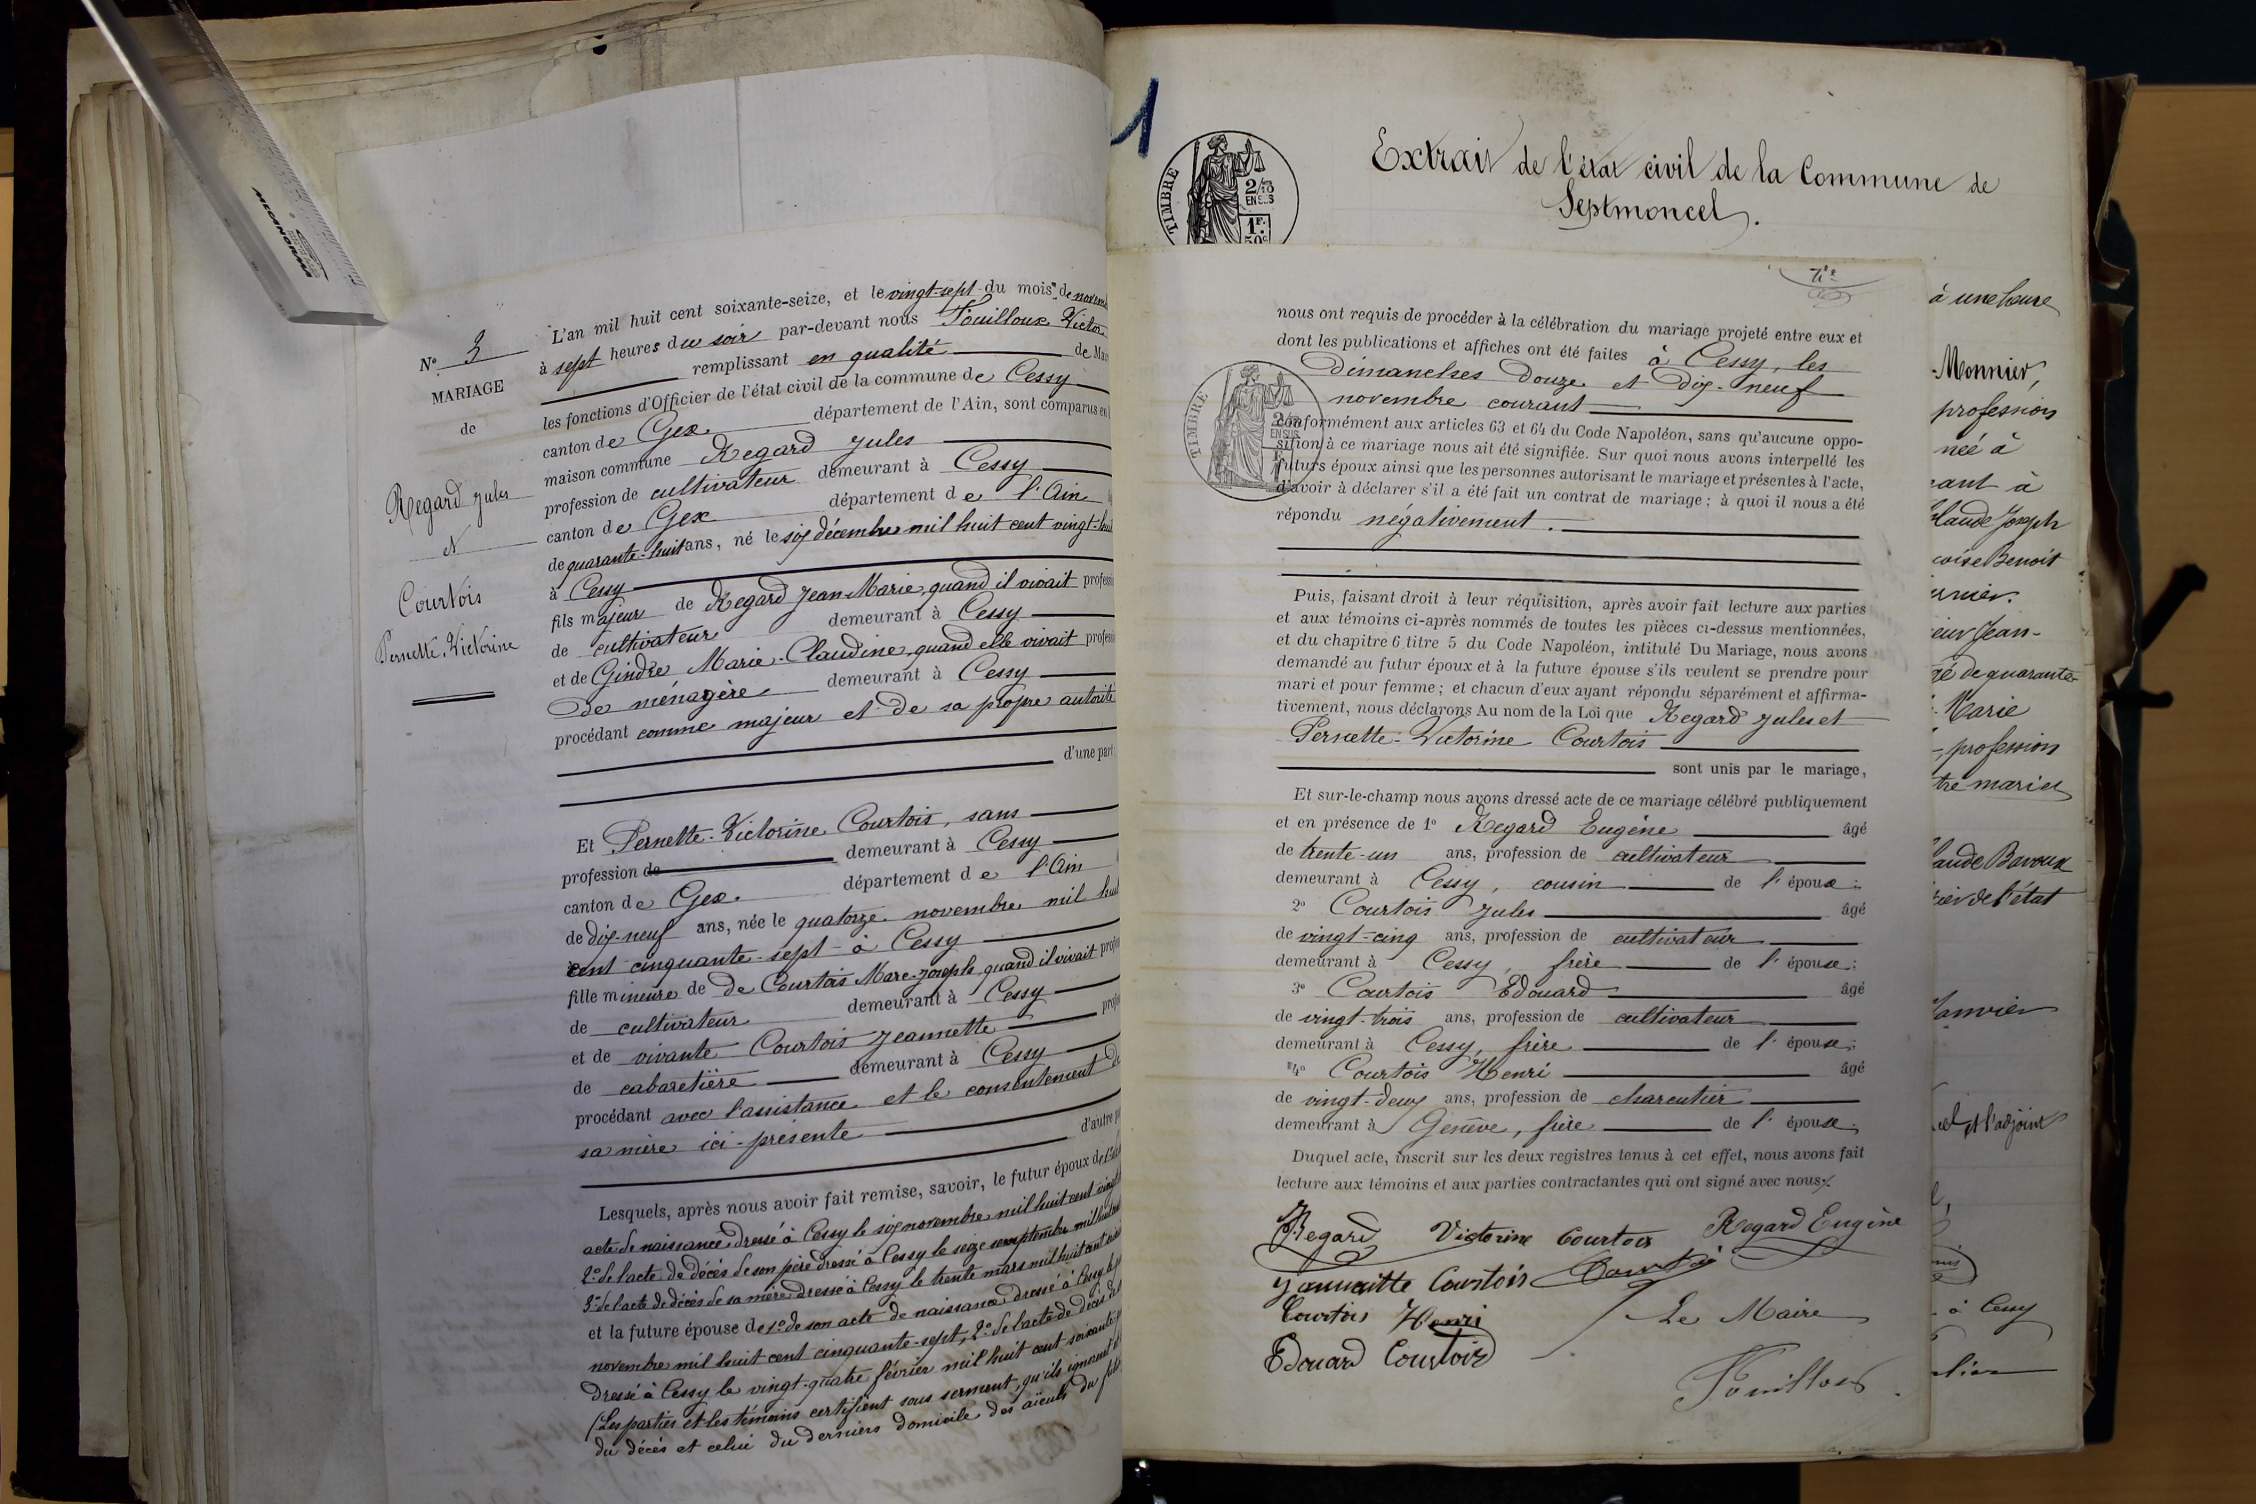 MECANORMA
N° 3
MARIAGE
de
Regard Jules
et
Courtois
Pernette-Victorine
L'an mil huit cent soixante-seize, et le vingt-sept du mois de
à sept heures du soir par-devant nous Fouilloux Victor
remplissant en qualité de
les fonctions d'Officier de l'état civil de la commune de Cessy
canton de Gex département de l'Ain, sont comparus en
maison commune Regard Jules
profession de cultivateur demeurant à Cessy
canton de Gex département de l'Ain
de quarante-huit ans, né le six décembre mil huit cent
à Cessy
fils majeur de Regard Jean-Marie, quand il vivait
de cultivateur demeurant à Cessy
et de Gindre Marie-Claudine, quand elle vivait
de ménagère demeurant à Cessy
procédant comme majeur et de sa propre autorité
d'une part
Et Pernette-Victorine Courtois, sans
profession de demeurant à Cessy
canton de Gex. département de l'Ain
de dix-neuf ans, née le quatorze novembre mil
cent cinquante-sept à Cessy
fille mineure de de Courtois Marc-Joseph, quand il vivait
de cultivateur demeurant à Cessy
et de vivante Courtois Jeannette
de cabaretière demeurant à Cessy
procédant avec l'assistance et le consentement
sa mère ici-présente
d'autre
Lesquels, après nous avoir fait remise, savoir, le futur époux de
acte de naissance dressé à Cessy le six novembre mil huit cent
2° de l'acte de décès de son père dressé à Cessy le seize septembre
3° de l'acte de décès de sa mère dressé à Cessy le trente mars mil huit cent
et la future épouse de 1° de son acte de naissance dressé à Cessy
novembre mil huit cent cinquante-sept, 2° de l'acte de décès
dressé à Cessy le vingt-quatre février mil huit cent soixante
(Les parties et les témoins certifient sous serment, qu'ils ignorent
du décès et celui du derniers domicile des aïeuls du
1
TIMBRE
2/10
EN SUS
1F.
50c
Extrait de l'état civil de la Commune de
Septmoncel.
nous ont requis de procéder à la célébration du mariage projeté entre eux et
dont les publications et affiches ont été faites à Cessy, les
Dimanches Douze et Dix-neuf
novembre courant
conformément aux articles 63 et 64 du Code Napoléon, sans qu'aucune oppo-
sition à ce mariage nous ait été signifiée. Sur quoi nous avons interpellé les
futurs époux ainsi que les personnes autorisant le mariage et présentes à l'acte,
d'avoir à déclarer s'il a été fait un contrat de mariage; à quoi il nous a été
répondu négativement.
TIMBRE
EN SUS
Puis, faisant droit à leur réquisition, après avoir fait lecture aux parties
et aux témoins ci-après nommés de toutes les pièces ci-dessus mentionnées,
et du chapitre 6 titre 5 du Code Napoléon, intitulé Du Mariage, nous avons
demandé au futur époux et à la future épouse s'ils veulent se prendre pour
mari et pour femme; et chacun d'eux ayant répondu séparément et affirma-
tivement, nous déclarons Au nom de la Loi que Regard Jules et
Pernette-Victorine Courtois
sont unis par le mariage,
Et sur-le-champ nous avons dressé acte de ce mariage célébré publiquement
et en présence de 1° Regard Eugène âgé
de trente-un ans, profession de cultivateur
demeurant à Cessy, cousin de l'épouse;
2° Courtois Jules âgé
de vingt-cinq ans, profession de cultivateur
demeurant à Cessy, frère de l'épouse;
3° Courtois Edouard âgé
de vingt-trois ans, profession de cultivateur
demeurant à Cessy, frère de l'épouse;
4° Courtois Henri âgé
de vingt-deux ans, profession de charcutier
demeurant à Genève, frère de l'épouse;
Duquel acte, inscrit sur les deux registres tenus à cet effet, nous avons fait
lecture aux témoins et aux parties contractantes qui ont signé avec nous.
Regard Victorine Courtois Regard Eugène
Courtois
Courtois Henri Le Maire
Edouard Courtois
Fouilloux
à une heure
Monnier,
profession
née à
à
Claude Joseph
Benoit
Jean-
de quarante-
Marie
profession
Bavoux
de l'état
Janvier
et l'adjoint
à Cessy